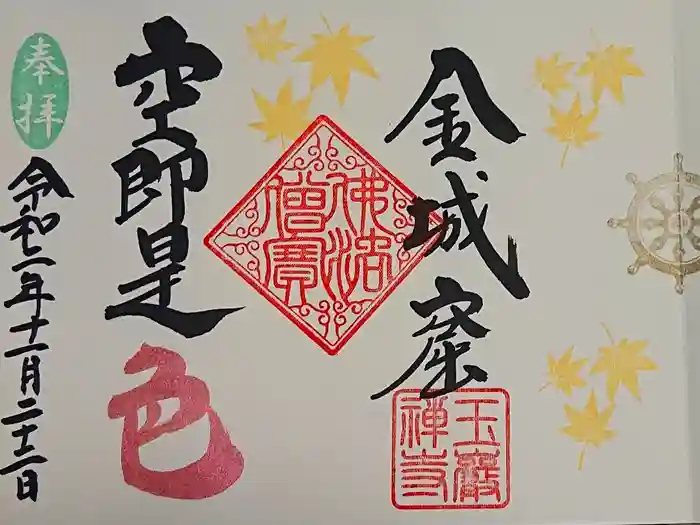 金城窟
玉巖
禪寺
佛法
僧寶
空即是色
奉拝
令和七年十一月二十二日